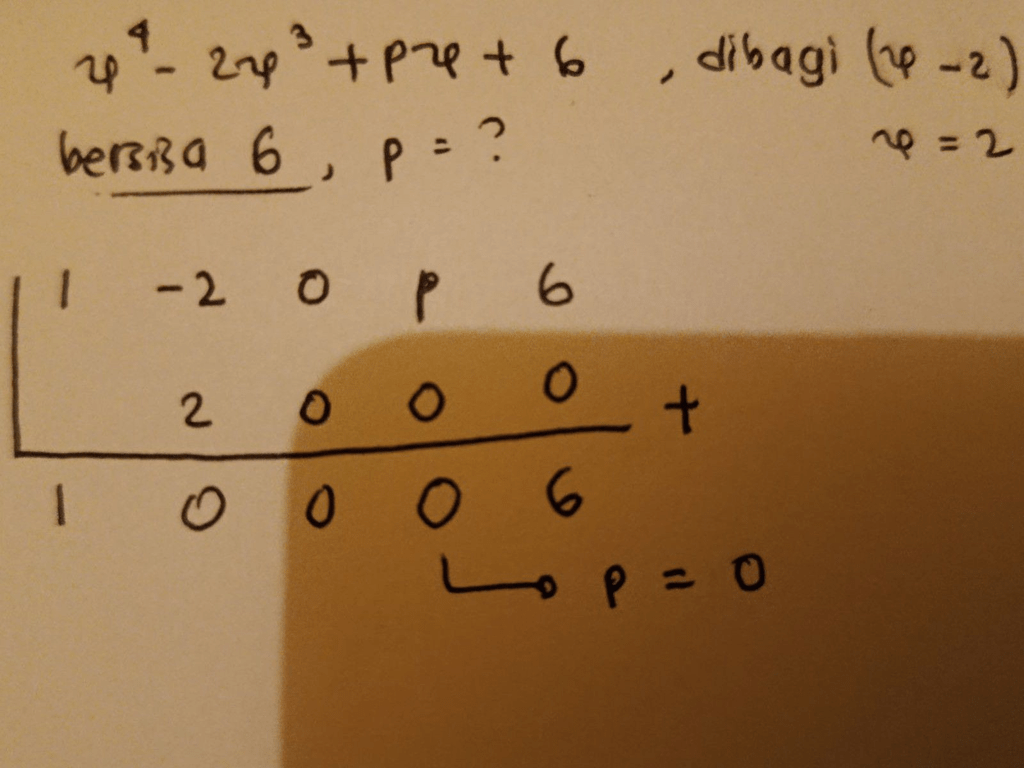 x⁴ - 2x³ + px + 6 , dibagi (x - 2)
bersisa 6, p = ? x = 2
1 -2 0 p 6
2 0 0 0 +
1 0 0 0 6
p = 0